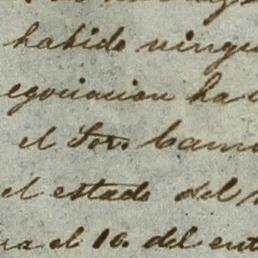 habido ningu
egociacion ha
el Sor. Cam
el estado del
ra el 10. del ent